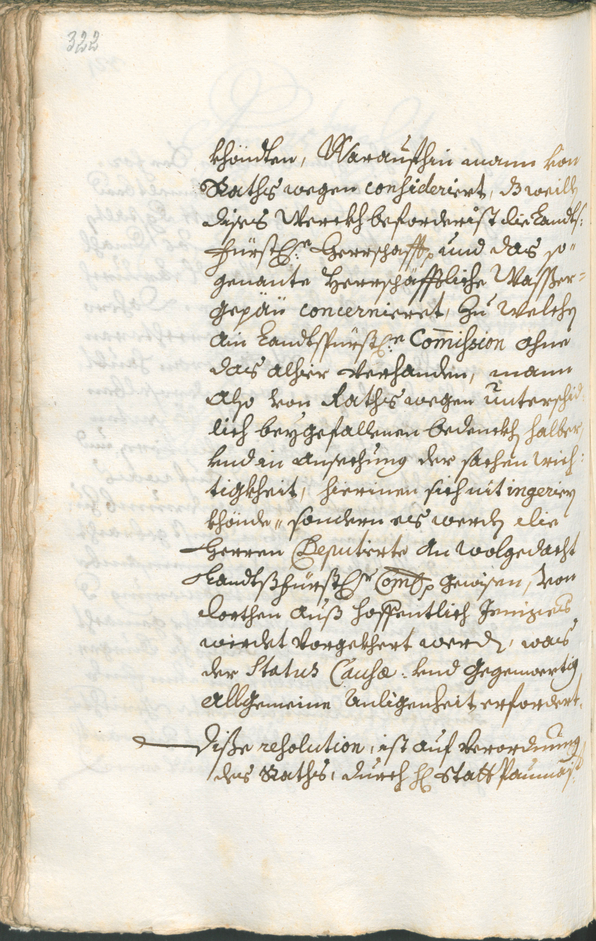 322
khöndten, Warauffhin mann von
Raths wegen consideriert, dß weillen
dises Werckh beforderist die Landts=
Fürstl: Herrschafft, und das so=
genante Herrschäfftliche Wasser=
gepäu concernieret, zu welchem
ain Landtsfürstl: Commission ohne
das alhier verhanden, mann
also von Raths wegen unterschid=
lich beygefallenen bedenckhen halber
und in ansechung der sachen wich=
tigkheit, hierinen sich nit ingerieren
khönde, sondern es werden die
Herren Deputierte an wolgedacht
Landtsfürstl: Comon gewisen, von
dorthen auß hoffentlich Jeniges
wirdet vorgekhert werden, was
der Status Causæ und gegenwertig
allgemeine Anligenheit erfordert.
Diße resolution, ist auf Verordnung
des Raths, durch H: Statt Paumaist